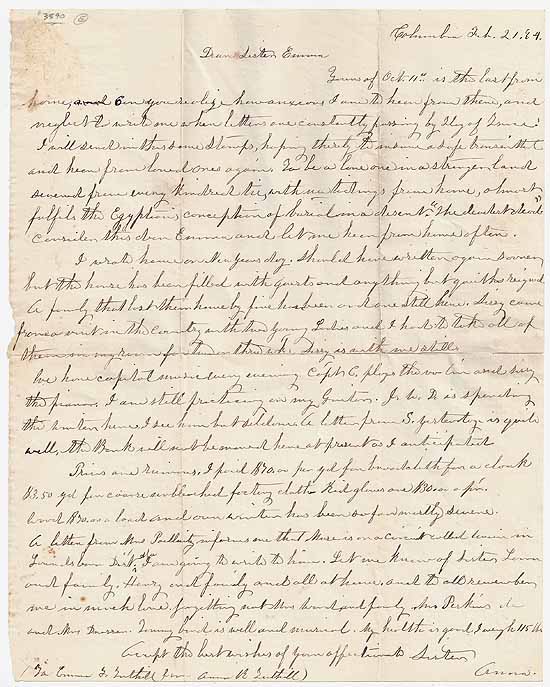 3590
Columbia Feb. 21. 64.
Dear Sister Emma
Yours of Oct 11th is the last from
home, and can you realize how anxious I am to hear from them, and
neglect to write me when letters are constantly passing by Flag of Truce?
I will send in this some stamps, hoping thereby to insure a safe transit
and hear from loved ones again. To be alone one in a strange land
severed from every kindred tie, without tidings from home, almost
fulfils the Egyptian conception of burial in a desert
consider this dear Emma and let me hear from home often.
I wrote home on New Years day. Should have written again sooner
but the house has been filled with guests and anything but quiet has reigned
A family that lost their home by fire has been and are still here. Lizzy came
from a visit in the country with two young Ladies and I had to take all of
them in my room for two or three wks. Lizzy is with me still
We have capital music every evening Capt C. plays the violin and Lizzy
the piano. I am still practicing on my Guitar.
the winter here I see him but seldom. A letter from S. yesterday is quite
well, the Bank will not be moved here at present as I anticipated
Prices are ruinous, I paid $30.00 per yd for broadcloth for a cloak
$3.50 yd for coarse unbleached factory cloth Kid gloves are $30.00 a pr.
wood $30.00 a load and our winter has been so far mostly severe.
A letter from Mrs informs me that there is a
I am going to write to him. Let me know of Sister
and family, Henry and family and all at home and to all remember
me in much love, forgetting not Mrs and family Mrs Perkins &c
and Mrs Tommy bird is well and musical. My health is good, I weigh 115 lbs
Accept the best wishes of your affectionate Sister
Anna.
(To Emma F. Tuthill from Anna R Tuthill)